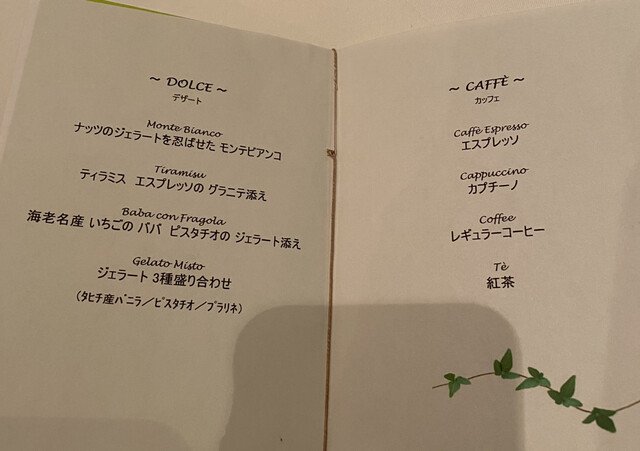 ~ DOLCE ~
デザート
Monte Bianco
ナッツのジェラートを忍ばせた モンテビアンコ
Tiramisu
ティラミス エスプレッソの グラニテ添え
Baba con Fragola
海老名産 いちごの ババ ピスタチオの ジェラート添え
Gelato Misto
ジェラート 3種盛り合わせ
(ﾀﾋﾁ産ﾊﾞﾆﾗ／ﾋﾟｽﾀﾁｵ／ﾌﾟﾗﾘﾈ)
~ CAFFÈ ~
カッフェ
Caffè Espresso
エスプレッソ
Cappuccino
カプチーノ
Coffee
レギュラーコーヒー
Tè
紅茶